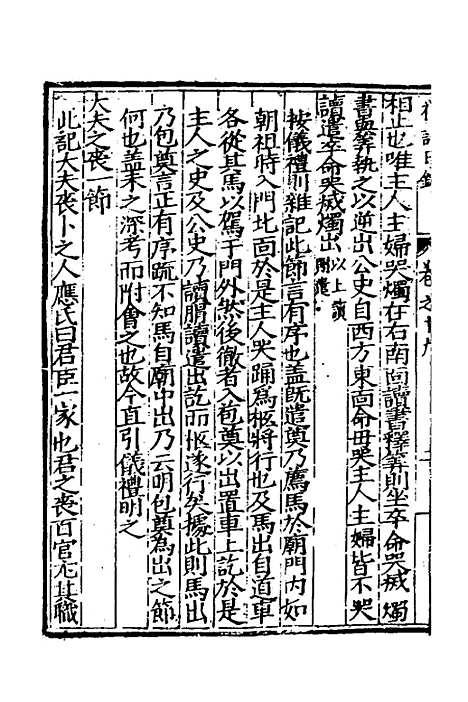 禮記日錄 卷之廿九
相止也唯主人主婦哭燭在右南面讀書釋筭則坐卒命哭滅燭
書與筭執之以逆出公史自西方東面命毋哭主人主婦皆不哭
讀遣卒命哭滅燭出以上讀賵遣
按儀禮則雜記此節言有序也蓋旣遣奠乃薦馬於廟門內如
朝祖時入門北面於是主人哭踊爲柩將行也及馬出自道車
各從其馬以駕于門外然後徹者入包奠以出置車上訖於是
主人之史及公史乃讀賵讀遣出訖而柩遂行矣據此則馬出
乃包奠言正有序疏不知馬自廟中出乃云明包奠爲出之節
何也蓋未之深考而附會之也故今直引儀禮明之
大夫之喪一節
此記大夫喪卜之人應氏曰君臣一家也君之喪百官庀其職